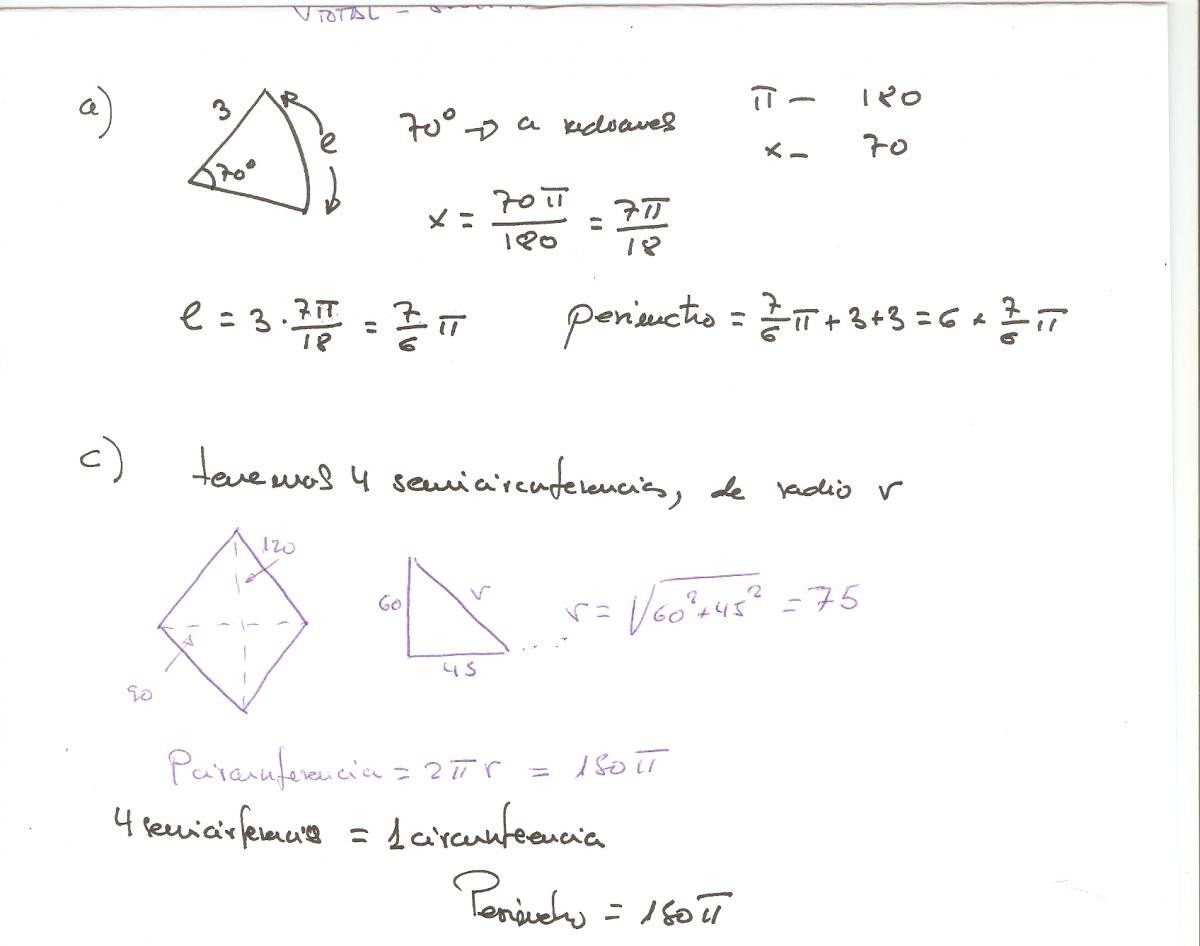 V TOTAL =
a)
3
70°
e
70° → a radianes
π - 180
x - 70
x = 70π/180 = 7π/18
e = 3 · 7π/18 = 7/6 π
perimetro = 7/6 π + 3 + 3 = 6 + 7/6 π
c) tenemos 4 semicircunferencias, de radio r
120
90
60
r
45
r = √60²+45² = 75
Pcircunferencia = 2πr = 150π
4 semicirferencias = 1 circunfecencia
Perimetro = 150π